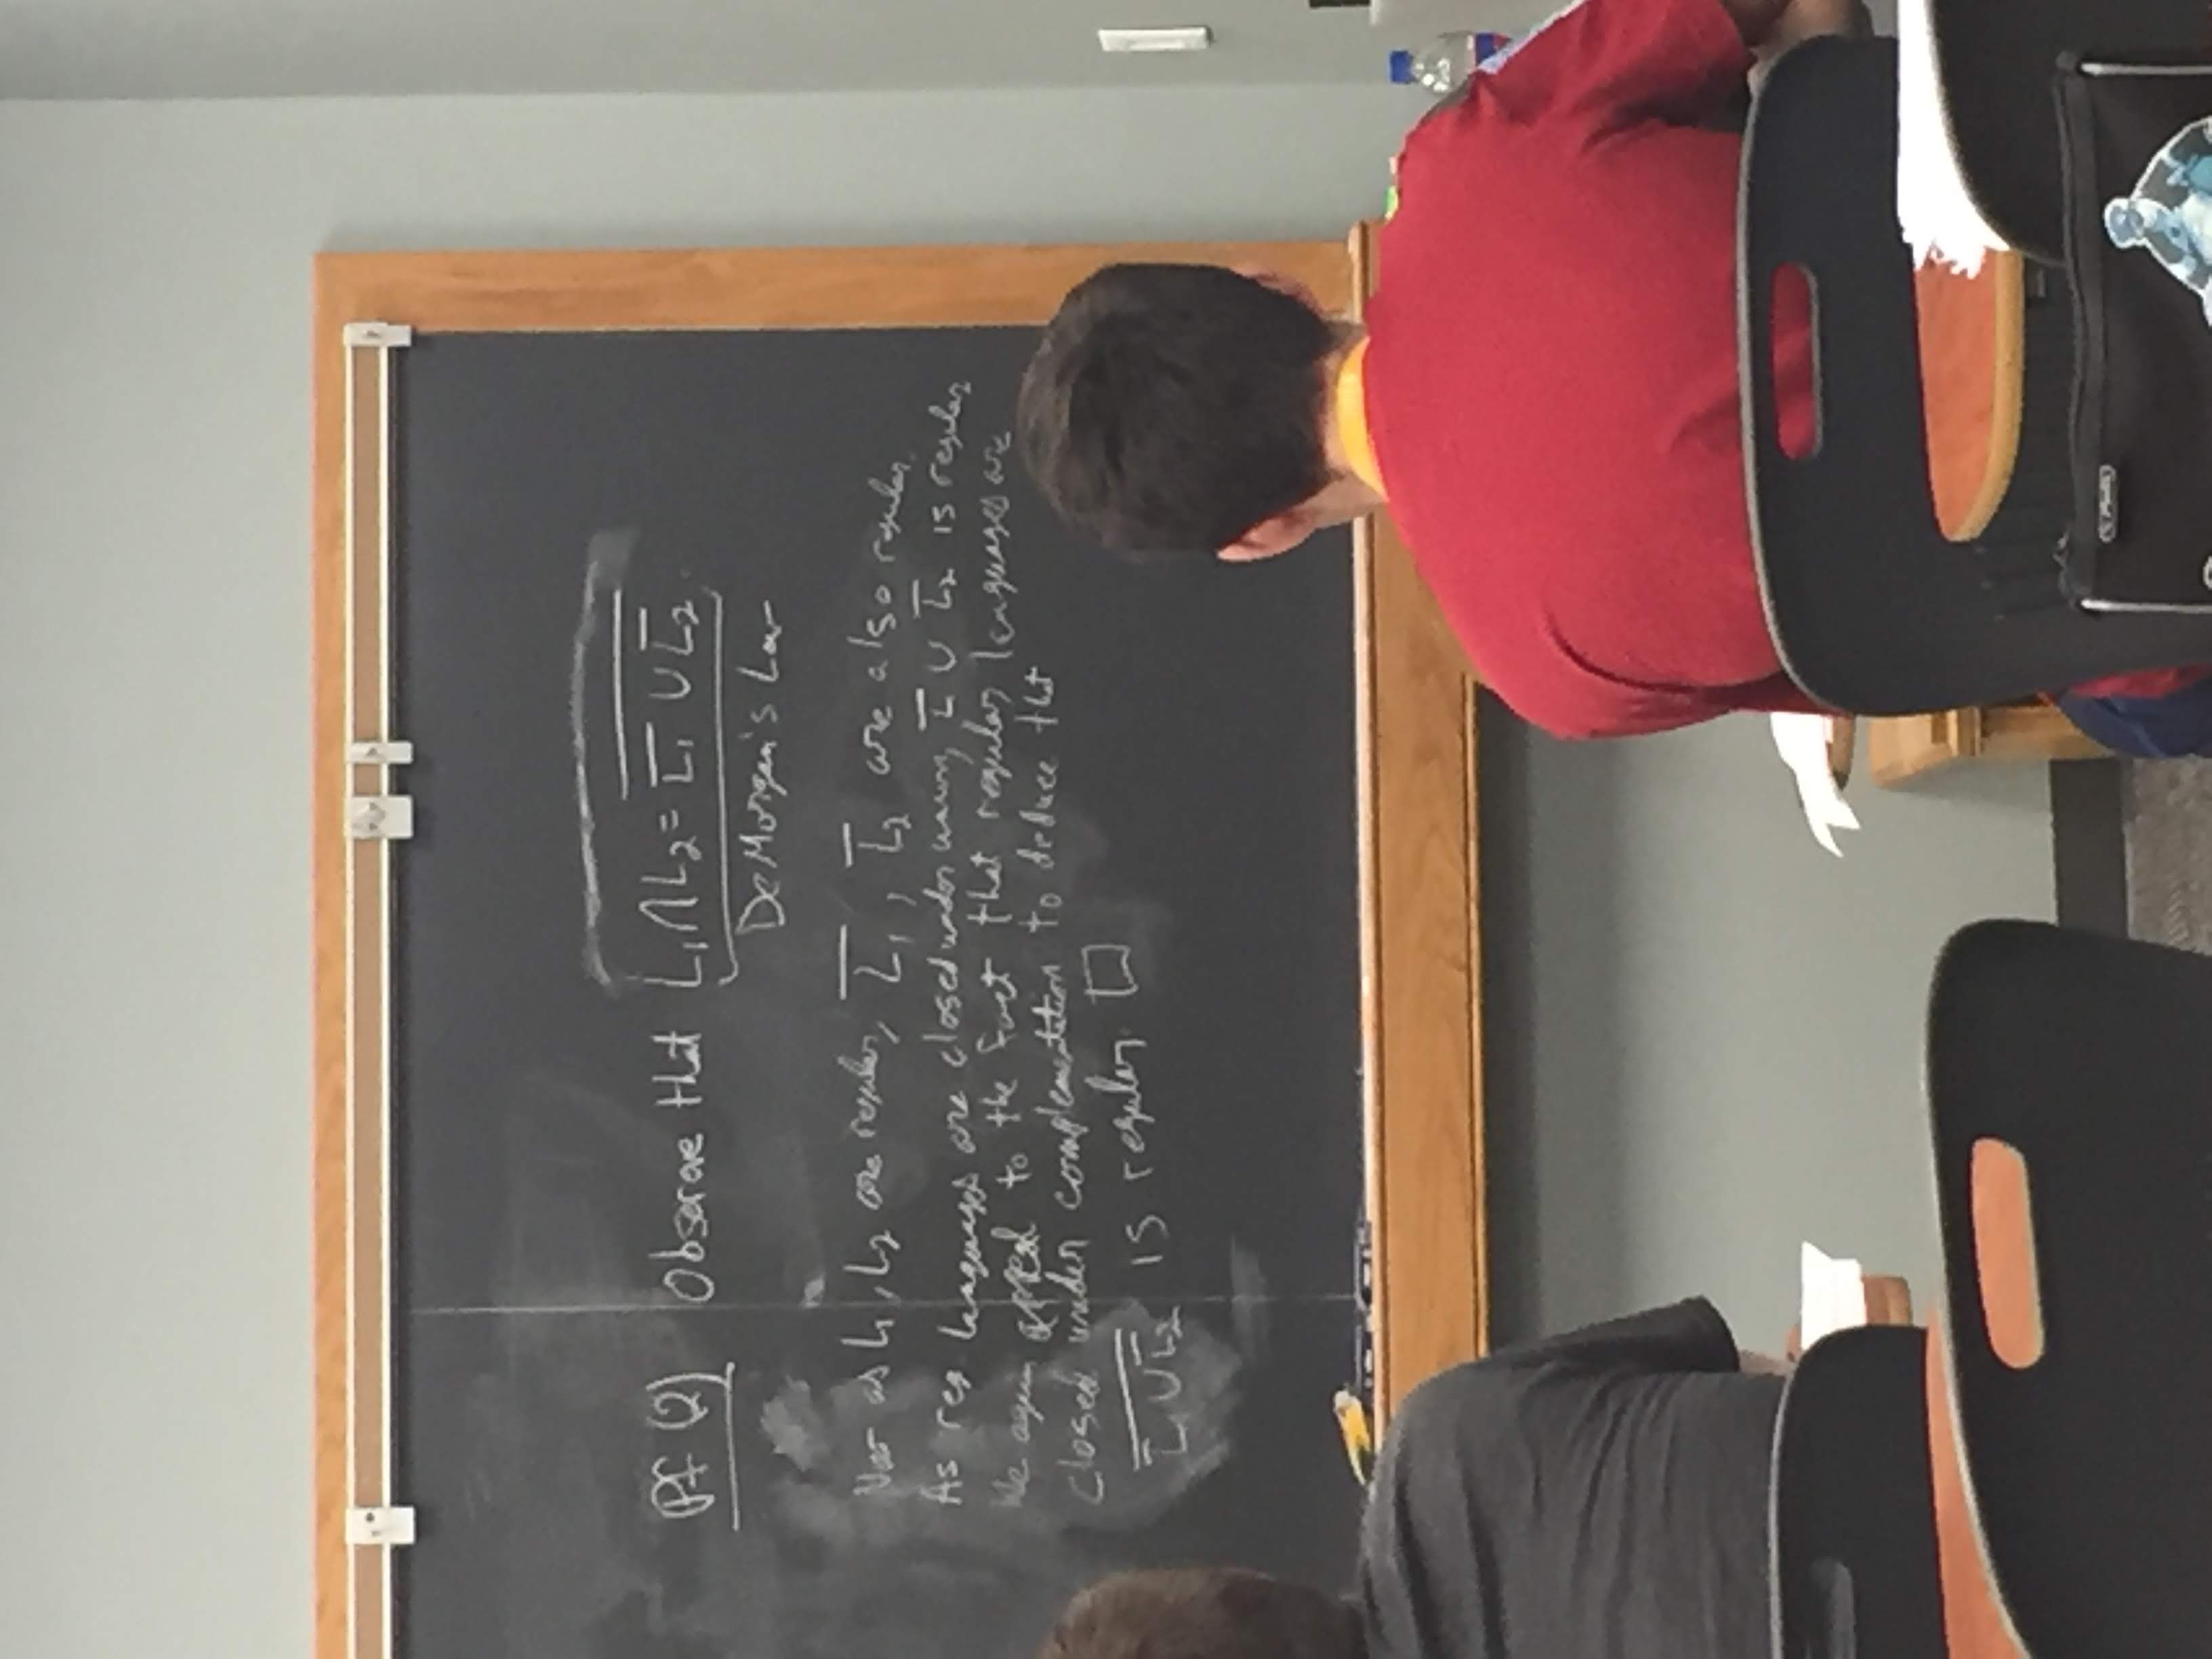 Pf (2) Observe that L₁∩L₂ = \overline{\overline{L₁} ∪ \overline{L₂}}
DeMorgan's Law
Now as L₁, L₂ are regular, \overline{L₁}, \overline{L₂} are also regular.
As reg languages are closed under union, \overline{L} ∪ \overline{L₂} is regular
We again appeal to the fact that regular languages are
closed under complementation to deduce that
\overline{\overline{L₁} ∪ \overline{L₂}} is regular. □